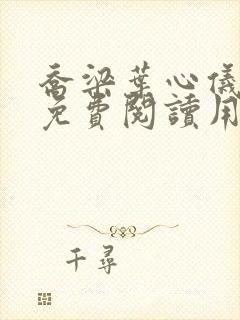 喬梁葉心儀
免費閱讀用
千尋